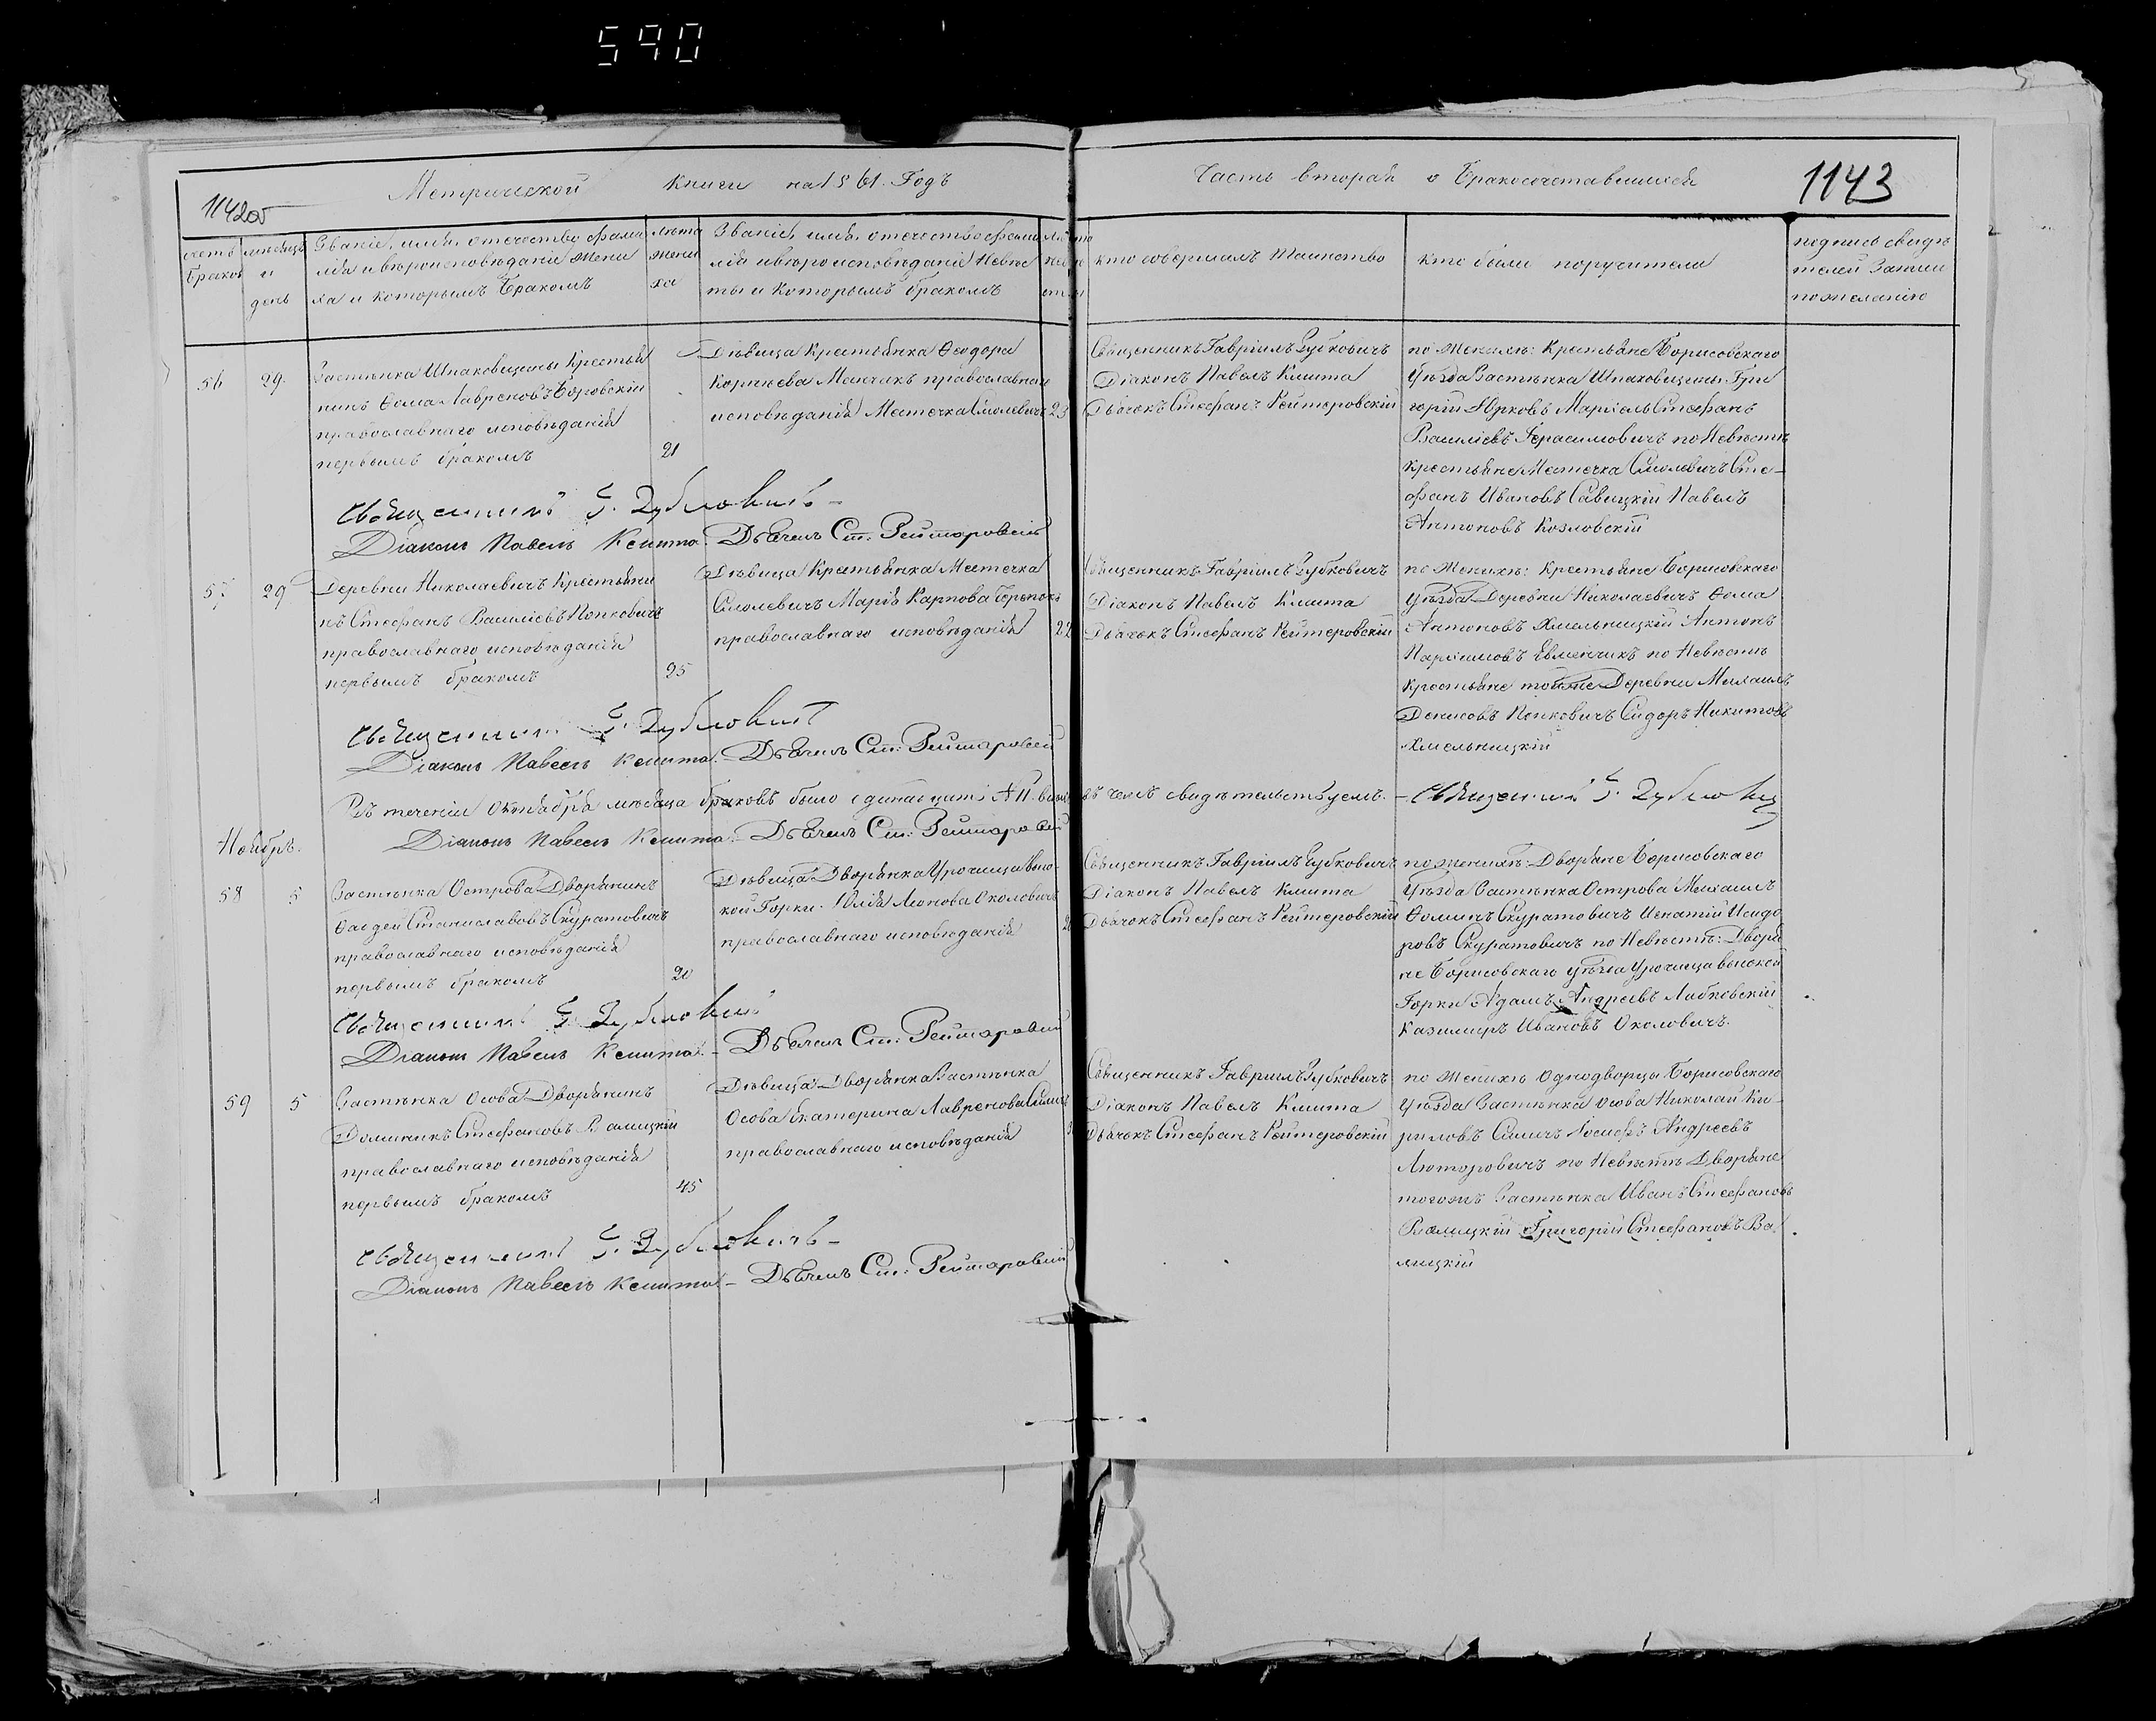 590
1142об
Метрической Книги на 1861. Годъ
Часть вторая о Бракосочетавшихся
1143
счетъ Браковъ
мѣсяцъ и день
Званіе, имя, отечество фами
лія и вѣроисповѣданіе Жени
ха и которымъ Бракомъ
лѣта жени ха
Званіе, имя, отечество фами
лія и вѣроисповѣданіе Невѣс
ты и которымъ бракомъ
кто совершалъ Таинство
кто были поручители
подпись свидѣ
телей Записи
по желанію
56 29.
Застѣнка Шпаковщины Крестья
нинъ Ѳома Лавреновъ Боровскій
православнаго исповѣданія
первымъ бракомъ
21
Дѣвица Крестьянка Ѳеодора
Корнѣева Манчикъ православнаго
исповѣданія Местечка Смолевичъ 23
Священникъ Гавріилъ Зубковичъ
Діаконъ Павелъ Клишта
Дьячокъ Стефанъ Рейтеровскій
по Женихѣ: Крестьяне Борисовскаго
Уѣзда Застѣнка Шпаковщины Гри
горій Юрковъ Марціель Стефанъ
Василіевъ Герасимовичъ по Невѣстѣ
Крестьяне Местечка Смолевичъ Сте-
фанъ Ивановъ Савицкій Павелъ
Антоновъ Козловскій
Священникъ Г. Зубковичъ
Діаконъ Павелъ Клишта. Дьячекъ Ст. Рейтаровскій
57 29
Деревни Николаевичъ Крестьяни
нъ Стефанъ Василіевъ Попковичъ
православнаго исповѣданія
первымъ бракомъ
25
Дѣвица Крестьянка Местечка
Смолевичъ Марія Карпова
православнаго исповѣданія 22
Священникъ Гавріилъ Зубковичъ
Діаконъ Павелъ Клишта
Дьячокъ Стефанъ Рейтеровскій
по Женихѣ: Крестьяне Борисовскаго
Уѣзда Деревни Николаевичъ Ѳома
Антоновъ Хмельницкій Антонъ
Евменчикъ по Невѣстѣ
Крестьяне той же Деревни Михаилъ
Денисовъ Попковичъ Сидоръ Никитовъ
Хмельницкій
Священникъ Г. Зубковичъ
Діаконъ Павелъ Клишта. Дьячекъ Ст. Рейтаровскій
Въ теченіи Октября мѣсяца браковъ было единацать № 11. въ чемъ свидѣтельствуемъ. Священникъ Г. Зубковичъ
Діаконъ Павелъ Клишта. Дьячекъ Ст. Рейтаровскій
Ноябрь.
58 5
Застѣнка Острова Дворянинъ
Ѳаддей Станиславовъ Скуратовичъ
православнаго исповѣданія
первымъ бракомъ
20
Дѣвица Дворянка Урочища Высо-
кой Горки. Юлія Леонова Околовичъ
православнаго исповѣданія
Священникъ Гавріилъ Зубковичъ
Діаконъ Павелъ Клишта
Дьячокъ Стефанъ Рейтеровскій
по женихѣ: Дворяне Борисовскаго
Уѣзда Застѣнка Острова Михаилъ
Ѳоминъ Скуратовичъ Игнатій Исидо
ровъ Скуратовичъ по Невѣстѣ: Дворя
не Борисовскаго уѣзда Урочища высокой
Горки Адамъ Андреевъ Лабковскій
Казимиръ Ивановъ Околовичъ.
Священникъ Г. Зубковичъ
Діаконъ Павелъ Клишта. Дьячекъ Ст. Рейтаровскій
59 5
Застѣнка Осова Дворянинъ
Доминикъ Стефановъ Валицкій
православнаго исповѣданія
первымъ бракомъ
45
Дѣвица Дворянка Застѣнка
Осова Екатерина Лавренова Силичъ
православнаго исповѣданія
Священникъ Гавріилъ Зубковичъ
Діаконъ Павелъ Клишта
Дьячокъ Стефанъ Рейтеровскій
по Женихѣ Однодворцы Борисовскаго
Уѣзда Застѣнка Осова Николай Ки-
риловъ Силичъ Іосифъ Андреевъ
Лютаровичъ по Невѣстѣ Дворяне
тогожъ Застѣнка Иванъ Стефановъ
Валицкій Григорій Стефановъ Ва
лицкій
Священникъ Г. Зубковичъ
Діаконъ Павелъ Клишта. Дьячекъ Ст. Рейтаровскій